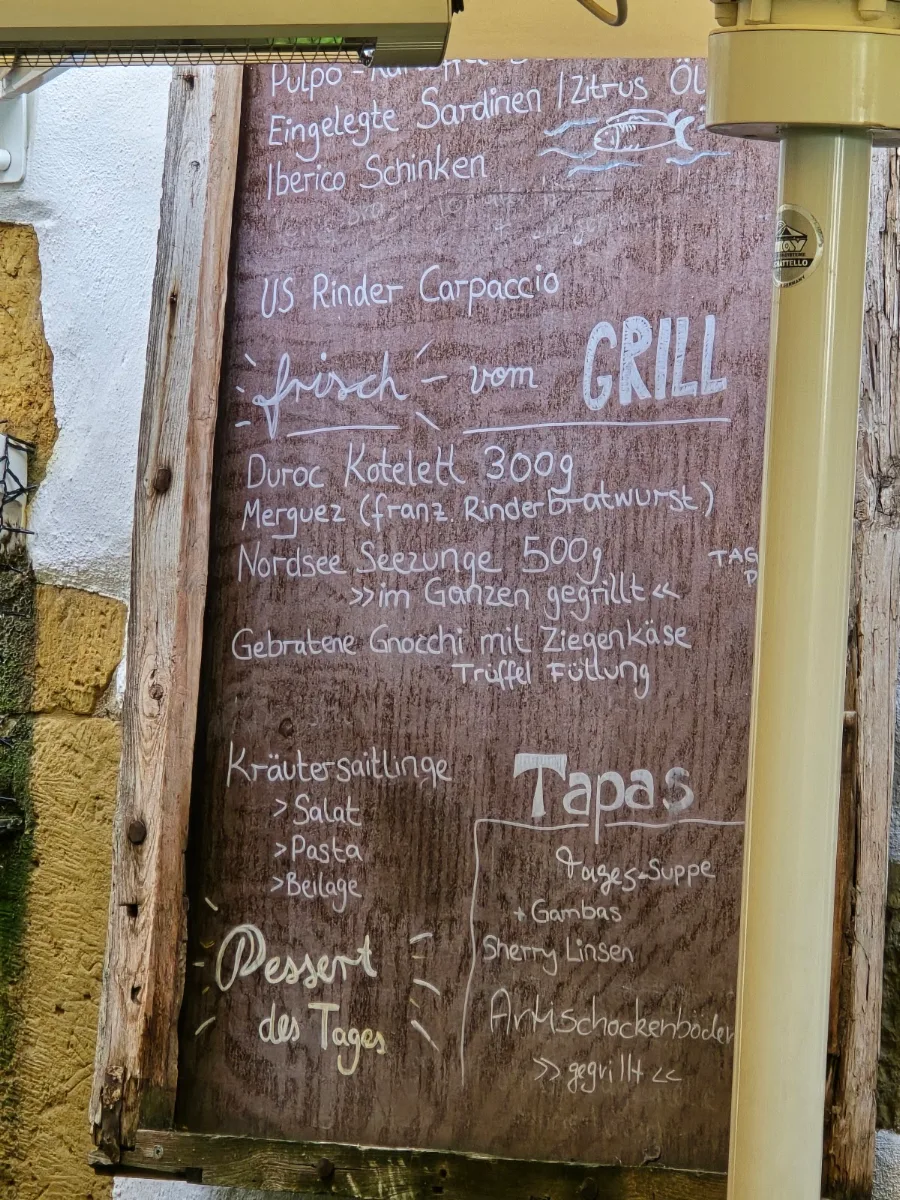 Pulpo -
Eingelegte Sardinen | Zitrus Öl
Iberico Schinken
US Rinder Carpaccio
frisch vom GRILL
Duroc Kotelett 300g
Merguez (franz. Rinderbratwurst)
Nordsee Seezunge 500g
»im Ganzen gegrillt«
TAG
Gebratene Gnocchi mit Ziegenkäse
Trüffel Füllung
Kräutersaitlinge
>Salat
>Pasta
>Beilage
Dessert
des Tages
Tapas
Tages-Suppe
+ Gambas
Sherry Linsen
Artischockenböden
»gegrillt«